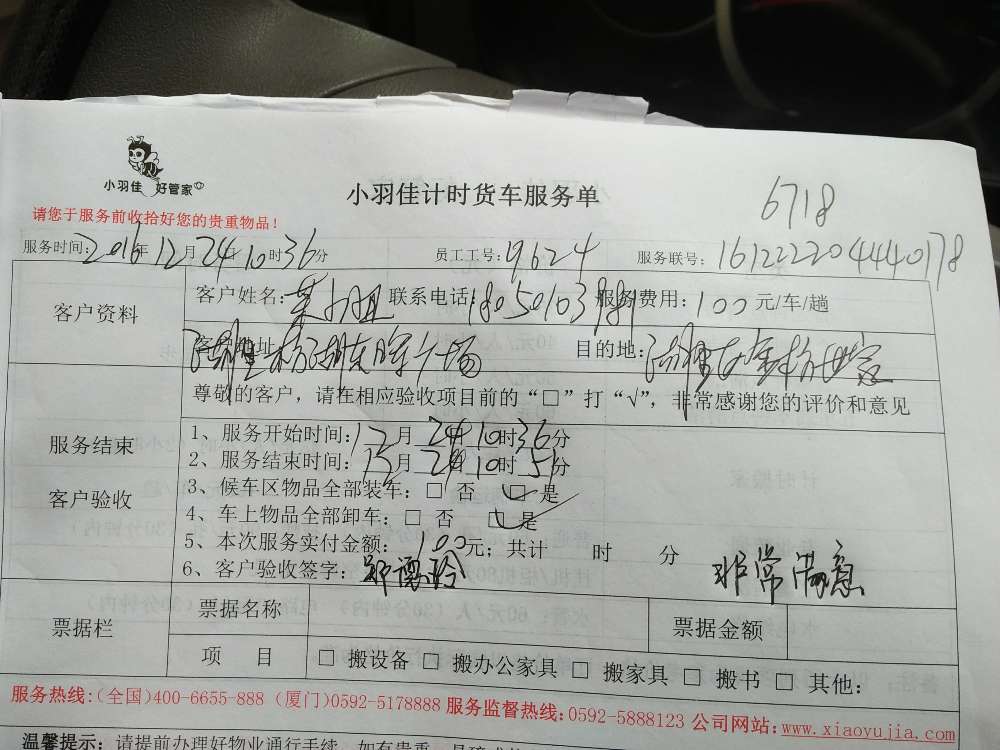 小羽佳 好管家
小羽佳计时货车服务单
6718
请您于服务前收拾好您的贵重物品!
服务时间:2016年12月24日10时36分 员工工号:19624 服务联号:161222204440178
客户资料
客户姓名: 小姐 联系电话:18050103991 服务费用:100元/车/趟
客户地址: 目的地:
尊敬的客户,请在相应验收项目前的“□”打“√”,非常感谢您的评价和意见
服务结束
客户验收
1、服务开始时间:12月24日10时36分
2、服务结束时间:12月24日10时51分
3、候车区物品全部装车:□ 否 ☑ 是
4、车上物品全部卸车:□ 否 ☑ 是
5、本次服务实付金额:100元;共计 时 分
6、客户验收签字: 非常满意
票据栏
票据名称 票据金额
项 目 □ 搬设备 □ 搬办公家具 □ 搬家具 □ 搬书 □ 其他:
服务热线:(全国)400-6655-888 (厦门)0592-5178888 服务监督热线:0592-5888123 公司网站:www.xiaoyujia.com
温馨提示:请提前办理好物业通行手续,如有贵重、易碎